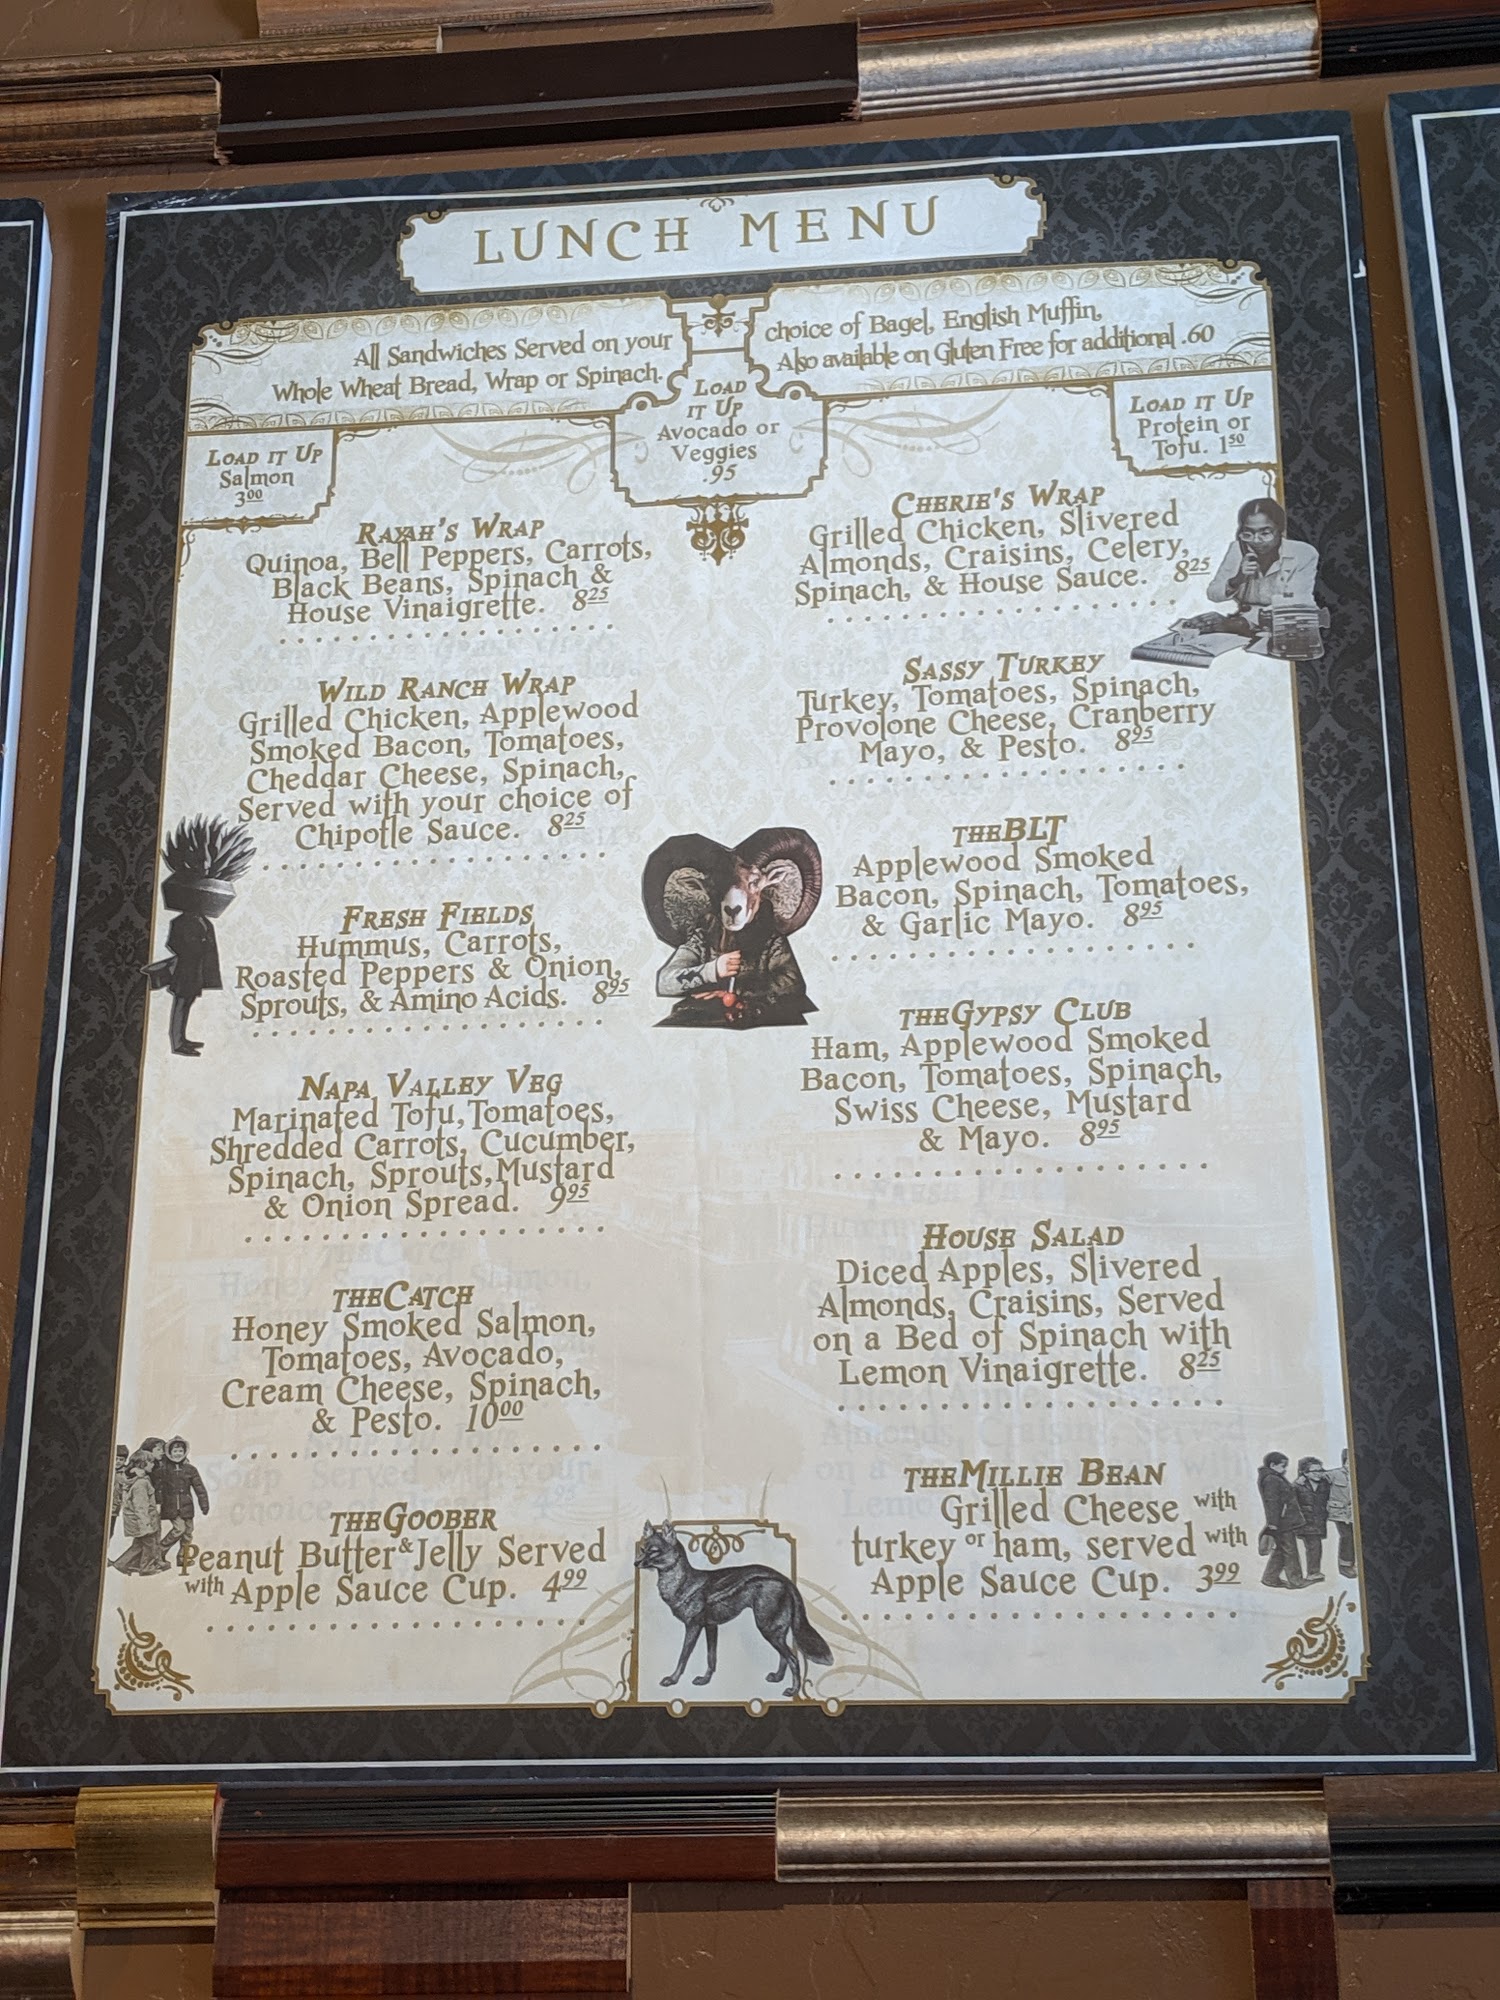 LUNCH MENU
All Sandwiches Served on your
Whole Wheat Bread, Wrap or Spinach.
choice of Bagel, English Muffin,
Also available on Gluten Free for additional .60
LOAD IT UP
Salmon
3.00
LOAD
IT UP
Avocado or
Veggies
.95
LOAD IT UP
Protein or
Tofu. 1.50
RAYAH'S WRAP
Quinoa, Bell Peppers, Carrots,
Black Beans, Spinach &
House Vinaigrette. 8 25
WILD RANCH WRAP
Grilled Chicken, Applewood
Smoked Bacon, Tomatoes,
Cheddar Cheese, Spinach,
Served with your choice of
Chipotle Sauce. 8 25
FRESH FIELDS
Hummus, Carrots,
Roasted Peppers & Onion,
Sprouts, & Amino Acids. 8 95
NAPA VALLEY VEG
Marinated Tofu, Tomatoes,
Shredded Carrots, Cucumber,
Spinach, Sprouts, Mustard
& Onion Spread. 9 95
THE CATCH
Honey Smoked Salmon,
Tomatoes, Avocado,
Cream Cheese, Spinach,
& Pesto. 10 00
THE GOOBER
Peanut Butter & Jelly Served
with Apple Sauce Cup. 4 99
CHERIE'S WRAP
Grilled Chicken, Slivered
Almonds, Craisins, Celery,
Spinach, & House Sauce. 8 25
SASSY TURKEY
Turkey, Tomatoes, Spinach,
Provolone Cheese, Cranberry
Mayo, & Pesto. 8 95
THE BLT
Applewood Smoked
Bacon, Spinach, Tomatoes,
& Garlic Mayo. 8 95
THE GYPSY CLUB
Ham, Applewood Smoked
Bacon, Tomatoes, Spinach,
Swiss Cheese, Mustard
& Mayo. 8 95
HOUSE SALAD
Diced Apples, Slivered
Almonds, Craisins, Served
on a Bed of Spinach with
Lemon Vinaigrette. 8 25
THE MILLIE BEAN
Grilled Cheese with
turkey or ham, served with
Apple Sauce Cup. 3 99